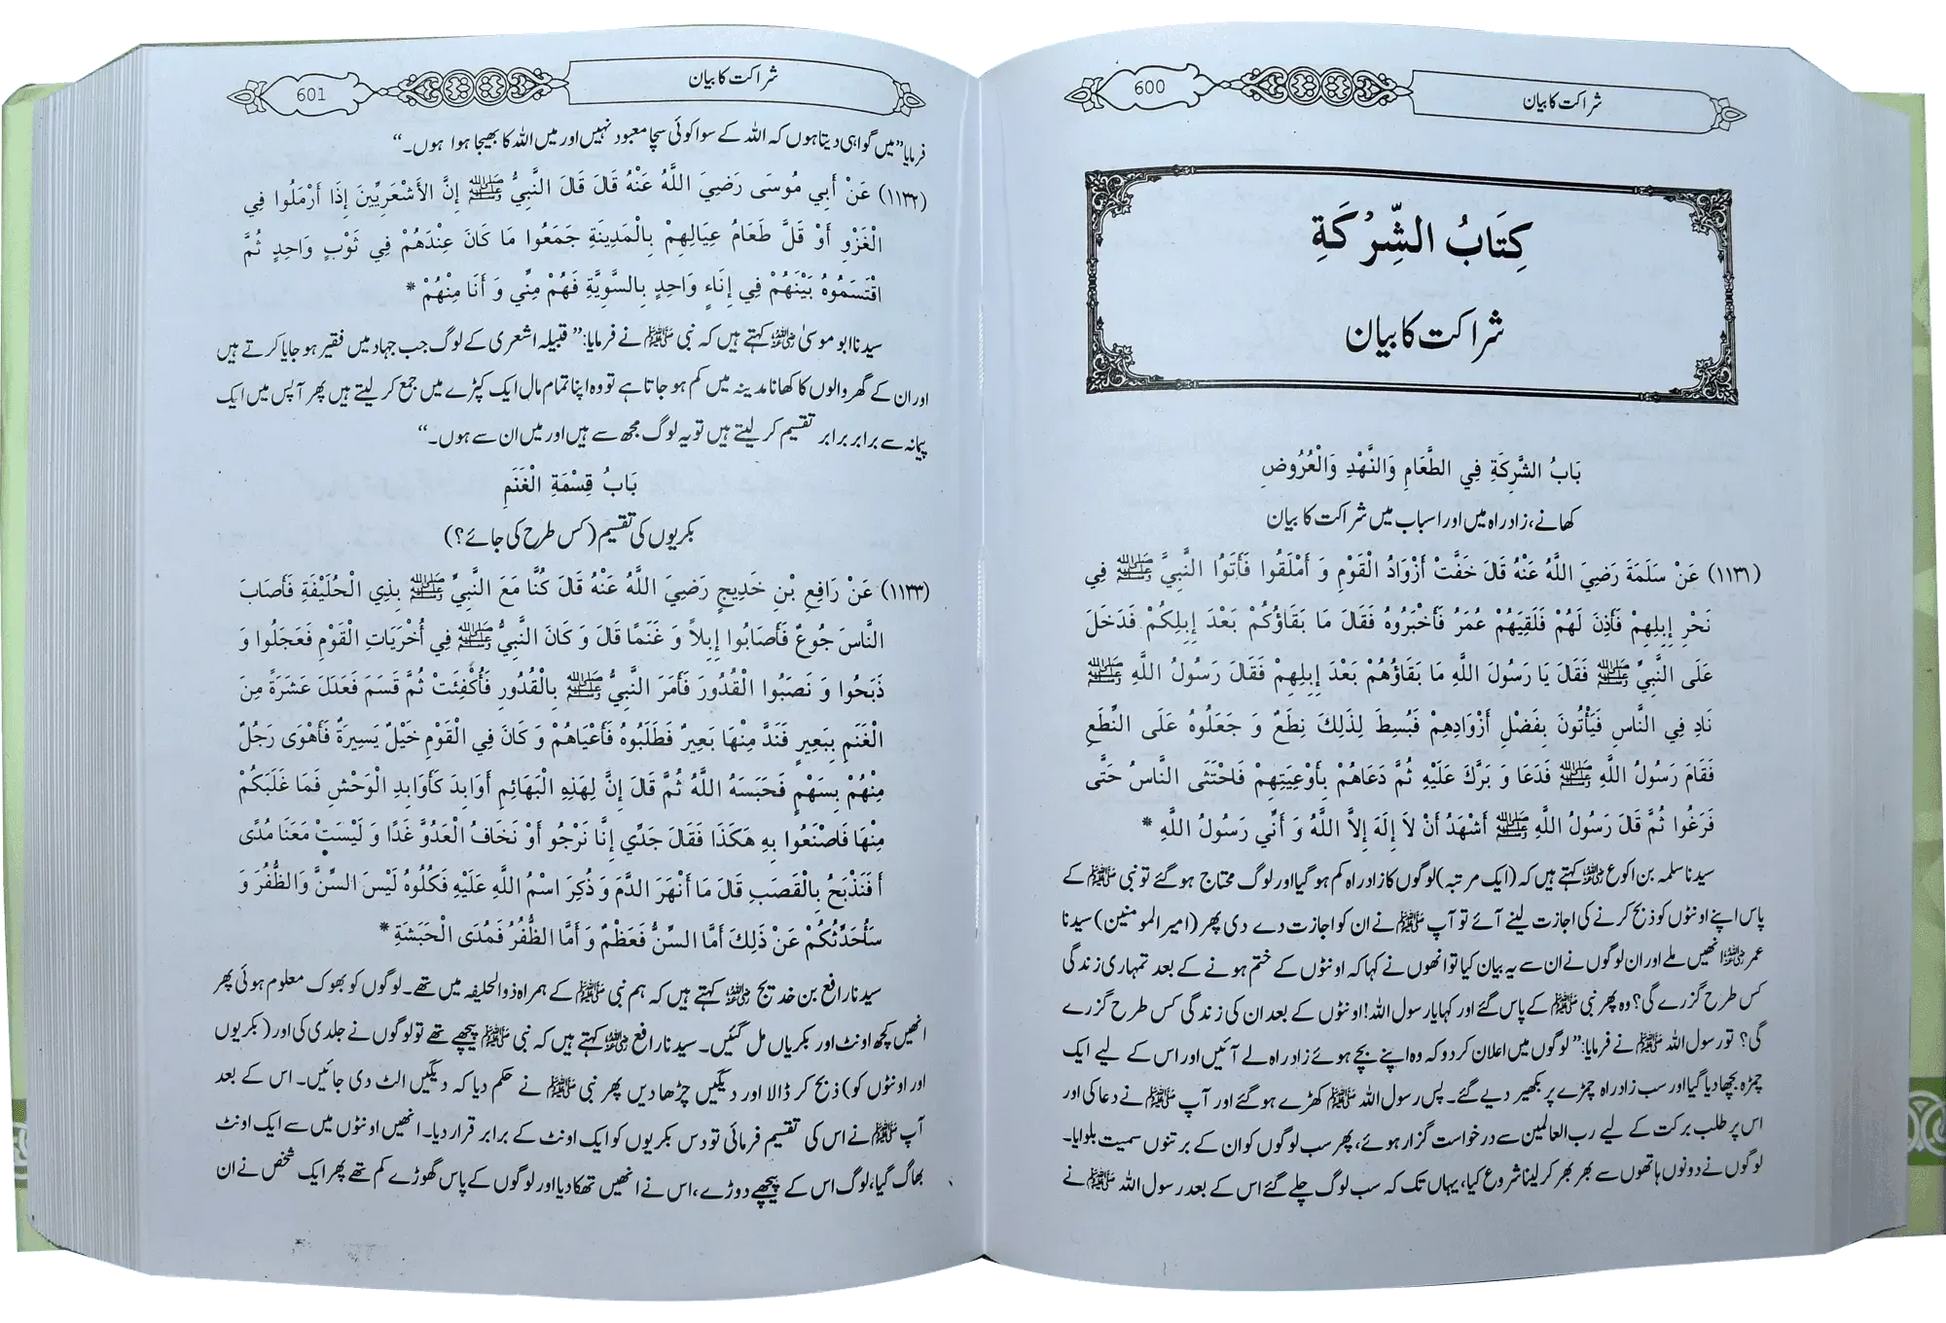 600
شراکت کا بیان
كِتَابُ الشِّرْكَةِ
شراکت کا بیان
بَابُ الشَّرِكَةِ فِي الطَّعَامِ وَالنَّهْدِ وَالْعُرُوضِ
کھانے، زادراہ میں اور اسباب میں شراکت کا بیان
(۱۱۳۱) عَنْ سَلَمَةَ رَضِيَ اللَّهُ عَنْهُ قَالَ خَفَّتْ أَزْوَادُ الْقَوْمِ وَ أَمْلَقُوا فَأَتَوُا النَّبِيَّ ﷺ فِي
نَحْرِ إِبِلِهِمْ فَأَذِنَ لَهُمْ فَلَقِيَهُمْ عُمَرُ فَأَخْبَرُوهُ فَقَالَ مَا بَقَاؤُكُمْ بَعْدَ إِبِلِكُمْ فَدَخَلَ
عَلَى النَّبِيِّ ﷺ فَقَالَ يَا رَسُولَ اللَّهِ مَا بَقَاؤُهُمْ بَعْدَ إِبِلِهِمْ فَقَالَ رَسُولُ اللَّهِ ﷺ
نَادِ فِي النَّاسِ فَيَأْتُونَ بِفَضْلِ أَزْوَادِهِمْ فَبُسِطَ لِذَلِكَ نِطَعٌ وَ جَعَلُوهُ عَلَى النِّطَعِ
فَقَامَ رَسُولُ اللَّهِ ﷺ فَدَعَا وَ بَرَّكَ عَلَيْهِ ثُمَّ دَعَاهُمْ بِأَوْعِيَتِهِمْ فَاحْتَثَى النَّاسُ حَتَّى
فَرَغُوا ثُمَّ قَالَ رَسُولُ اللَّهِ ﷺ أَشْهَدُ أَنْ لاَ إِلَهَ إِلاَّ اللَّهُ وَ أَنِّي رَسُولُ اللَّهِ *
سیدنا سلمہ بن اکوع ؓ کہتے ہیں کہ (ایک مرتبہ) لوگوں کا زادراہ کم ہو گیا اور لوگ محتاج ہو گئے تو نبی ﷺ کے
پاس اپنے اونٹوں کو ذبح کرنے کی اجازت لینے آئے تو آپ ﷺ نے ان کو اجازت دے دی پھر (امیر المومنین) سیدنا
عمر ؓ انھیں ملے اور ان لوگوں نے ان سے یہ بیان کیا تو انھوں نے کہا کہ اونٹوں کے ختم ہونے کے بعد تمہاری زندگی
کس طرح گزرے گی؟ وہ پھر نبی ﷺ کے پاس گئے اور کہا یا رسول اللہ! اونٹوں کے بعد ان کی زندگی کس طرح گزرے
گی؟ تو رسول اللہ ﷺ نے فرمایا: ”لوگوں میں اعلان کر دو کہ وہ اپنے بچے ہوئے زادراہ لے آئیں اور اس کے لیے ایک
چمڑہ بچھا دیا گیا اور سب زادراہ چمڑے پر بکھیر دیے گئے۔ پس رسول اللہ ﷺ کھڑے ہو گئے اور آپ ﷺ نے دعا کی اور
اس پر طلب برکت کے لیے رب العالمین سے درخواست گزار ہوئے، پھر سب لوگوں کو ان کے برتنوں سمیت بلوایا۔
لوگوں نے دونوں ہاتھوں سے بھر بھر کر لینا شروع کیا، یہاں تک کہ سب لوگ چلے گئے اس کے بعد رسول اللہ ﷺ نے
601
شراکت کا بیان
فرمایا ”میں گواہی دیتا ہوں کہ اللہ کے سوا کوئی سچا معبود نہیں اور میں اللہ کا بھیجا ہوا ہوں۔“
(۱۱۳۲) عَنْ أَبِي مُوسَى رَضِيَ اللَّهُ عَنْهُ قَالَ قَالَ النَّبِيُّ ﷺ إِنَّ الأَشْعَرِيِّينَ إِذَا أَرْمَلُوا فِي
الْغَزْوِ أَوْ قَلَّ طَعَامُ عِيَالِهِمْ بِالْمَدِينَةِ جَمَعُوا مَا كَانَ عِنْدَهُمْ فِي ثَوْبٍ وَاحِدٍ ثُمَّ
اقْتَسَمُوهُ بَيْنَهُمْ فِي إِنَاءٍ وَاحِدٍ بِالسَّوِيَّةِ فَهُمْ مِنِّي وَ أَنَا مِنْهُمْ *
سیدنا ابو موسیٰ ؓ کہتے ہیں کہ نبی ﷺ نے فرمایا: ”قبیلہ اشعری کے لوگ جب جہاد میں فقیر ہو جایا کرتے ہیں
اور ان کے گھر والوں کا کھانا مدینہ میں کم ہو جاتا ہے تو وہ اپنا تمام مال ایک کپڑے میں جمع کر لیتے ہیں پھر آپس میں ایک
پیمانہ سے برابر برابر تقسیم کر لیتے ہیں تو یہ لوگ مجھ سے ہیں اور میں ان سے ہوں۔“
بَابُ قِسْمَةِ الْغَنَمِ
بکریوں کی تقسیم (کس طرح کی جائے؟)
(۱۱۳۳) عَنْ رَافِعِ بْنِ خَدِيجٍ رَضِيَ اللَّهُ عَنْهُ قَالَ كُنَّا مَعَ النَّبِيِّ ﷺ بِذِي الْحُلَيْفَةِ فَأَصَابَ
النَّاسَ جُوعٌ فَأَصَابُوا إِبِلاً وَ غَنَمًا قَالَ وَ كَانَ النَّبِيُّ ﷺ فِي أُخْرَيَاتِ الْقَوْمِ فَعَجَلُوا وَ
ذَبَحُوا وَ نَصَبُوا الْقُدُورَ فَأَمَرَ النَّبِيُّ ﷺ بِالْقُدُورِ فَأُكْفِئَتْ ثُمَّ قَسَمَ فَعَدَلَ عَشَرَةً مِنَ
الْغَنَمِ بِبَعِيرٍ فَنَدَّ مِنْهَا بَعِيرٌ فَطَلَبُوهُ فَأَعْيَاهُمْ وَ كَانَ فِي الْقَوْمِ خَيْلٌ يَسِيرَةٌ فَأَهْوَى رَجُلٌ
مِنْهُمْ بِسَهْمٍ فَحَبَسَهُ اللَّهُ ثُمَّ قَالَ إِنَّ لِهَذِهِ الْبَهَائِمِ أَوَابِدَ كَأَوَابِدِ الْوَحْشِ فَمَا غَلَبَكُمْ
مِنْهَا فَاصْنَعُوا بِهِ هَكَذَا فَقَالَ جَدِّي إِنَّا نَرْجُو أَوْ نَخَافُ الْعَدُوَّ غَدًا وَ لَيْسَتْ مَعَنَا مُدًى
أَفَنَذْبَحُ بِالْقَصَبِ قَالَ مَا أَنْهَرَ الدَّمَ وَ ذُكِرَ اسْمُ اللَّهِ عَلَيْهِ فَكُلُوهُ لَيْسَ السِّنَّ وَالظُّفُرَ وَ
سَأُحَدِّثُكُمْ عَنْ ذَلِكَ أَمَّا السِّنُّ فَعَظْمٌ وَ أَمَّا الظُّفُرُ فَمُدَى الْحَبَشَةِ *
سیدنا رافع بن خدیج ؓ کہتے ہیں کہ ہم نبی ﷺ کے ہمراہ ذوالحلیفہ میں تھے۔ لوگوں کو بھوک معلوم ہوئی پھر
انھیں کچھ اونٹ اور بکریاں مل گئیں۔ سیدنا رافع ؓ کہتے ہیں کہ نبی ﷺ پیچھے تھے تو لوگوں نے جلدی کی اور (بکریوں
اور اونٹوں کو) ذبح کر ڈالا اور دیگیں چڑھا دیں پھر نبی ﷺ نے حکم دیا کہ دیگیں الٹ دی جائیں۔ اس کے بعد
آپ ﷺ نے اس کی تقسیم فرمائی تو دس بکریوں کو ایک اونٹ کے برابر قرار دیا۔ انھیں اونٹوں میں سے ایک اونٹ
بھاگ گیا، لوگ اس کے پیچھے دوڑے، اس نے انھیں تھکا دیا اور لوگوں کے پاس گھوڑے کم تھے پھر ایک شخص نے ان